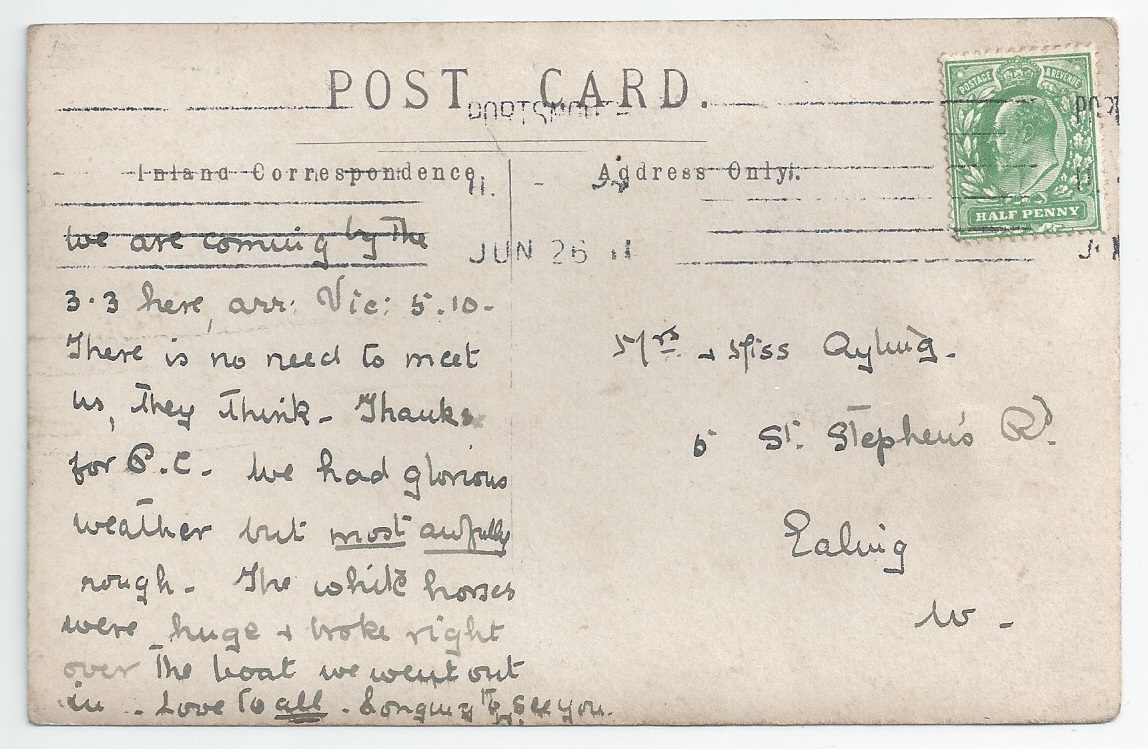 POST CARD.
PORTSMOUTH
Inland Correspondence
Address Only.
JUN 26 11
POSTAGE & REVENUE
HALF PENNY
we are coming by the
3.3 here, arr: Vic: 5.10-
There is no need to meet
us, they think - Thanks
for P.C. - we had glorious
weather but most awfully
rough - The white horses
were huge & broke right
over the boat we went out
in. Love to all. Longing to see you.
Mrs & Miss Ayling.
5 St. Stephen's Rd.
Ealing
W -